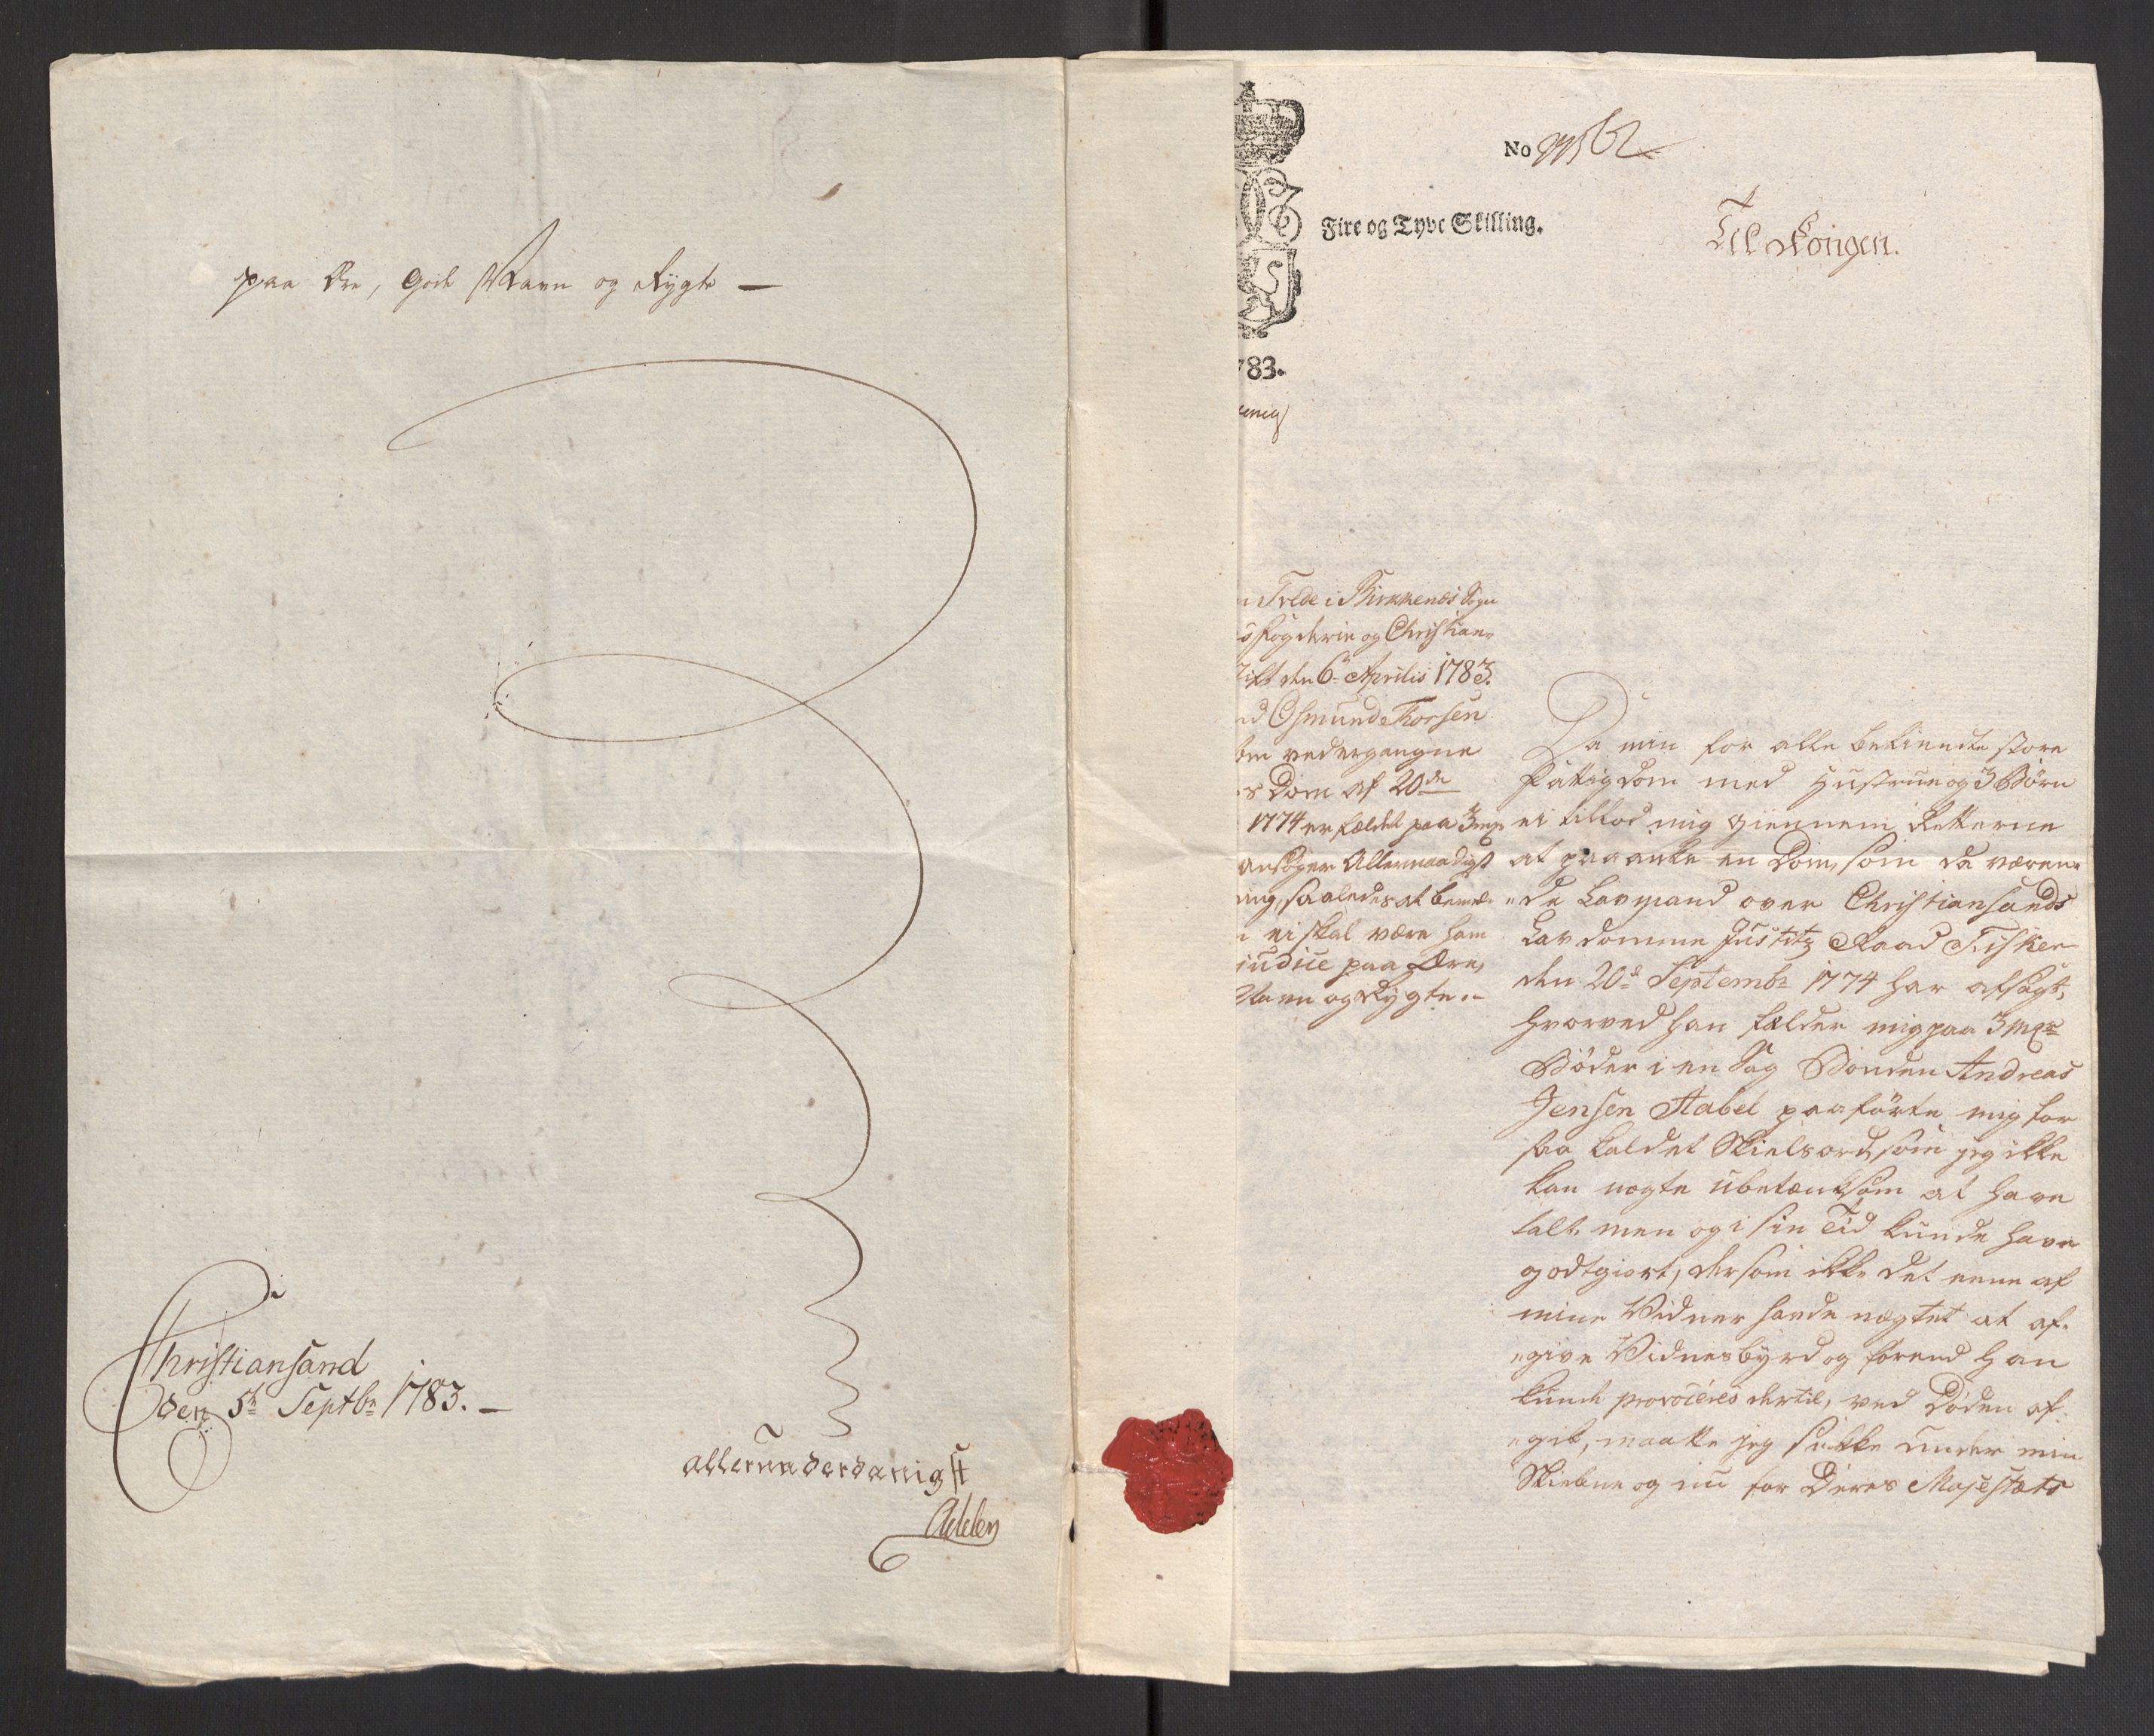 paa Ære, gode Navn og Rygte —
Christiansand
den 5te Septbr 1783. —
allerunderdanigst
Adeler
No
Fire og Tyve Skilling.
Til Kongen.
783.
Trede i Birkkenæs Sogn
Fogderie og Christian-
den 6te Aprilis 1783.
Osmund Thorsen
vedergangne
Dom af 20de
1774 er fældet paa 3 mrs
ansøger Allernaadigst
saaledes at bemel-
ei skal være ham
judice paa Ære,
Navn og Rygte.-
Da min for alle bekiendte store
Fattigdom med Hustrue og 3 Børn
ei tillod mig giennem Retterne
at paaanke en Dom, som da væren-
-de Lavmand over Christiansands
Lavdomme Justitz Raad Fisker
den 20de Septembr 1774 har afsagt,
hvorved han fælder mig paa 3 mrs
Bøder i en Sag Bonden Andreas
Jensen Stabel paaførte mig for
saa kaldet Skieldsord, som jeg ikke
kan nægte ubetænksom at have
talt, men og i sin Tid kunde have
godtgiort, dersom ikke det eene af
mine Vidner havde nægtet at af-
-give Vidnesbyrd og førend han
kunde provoceres dertil, ved Døden af-
-gik, maatte jeg sukke under min
Skiebne og nu for Deres Majestæts